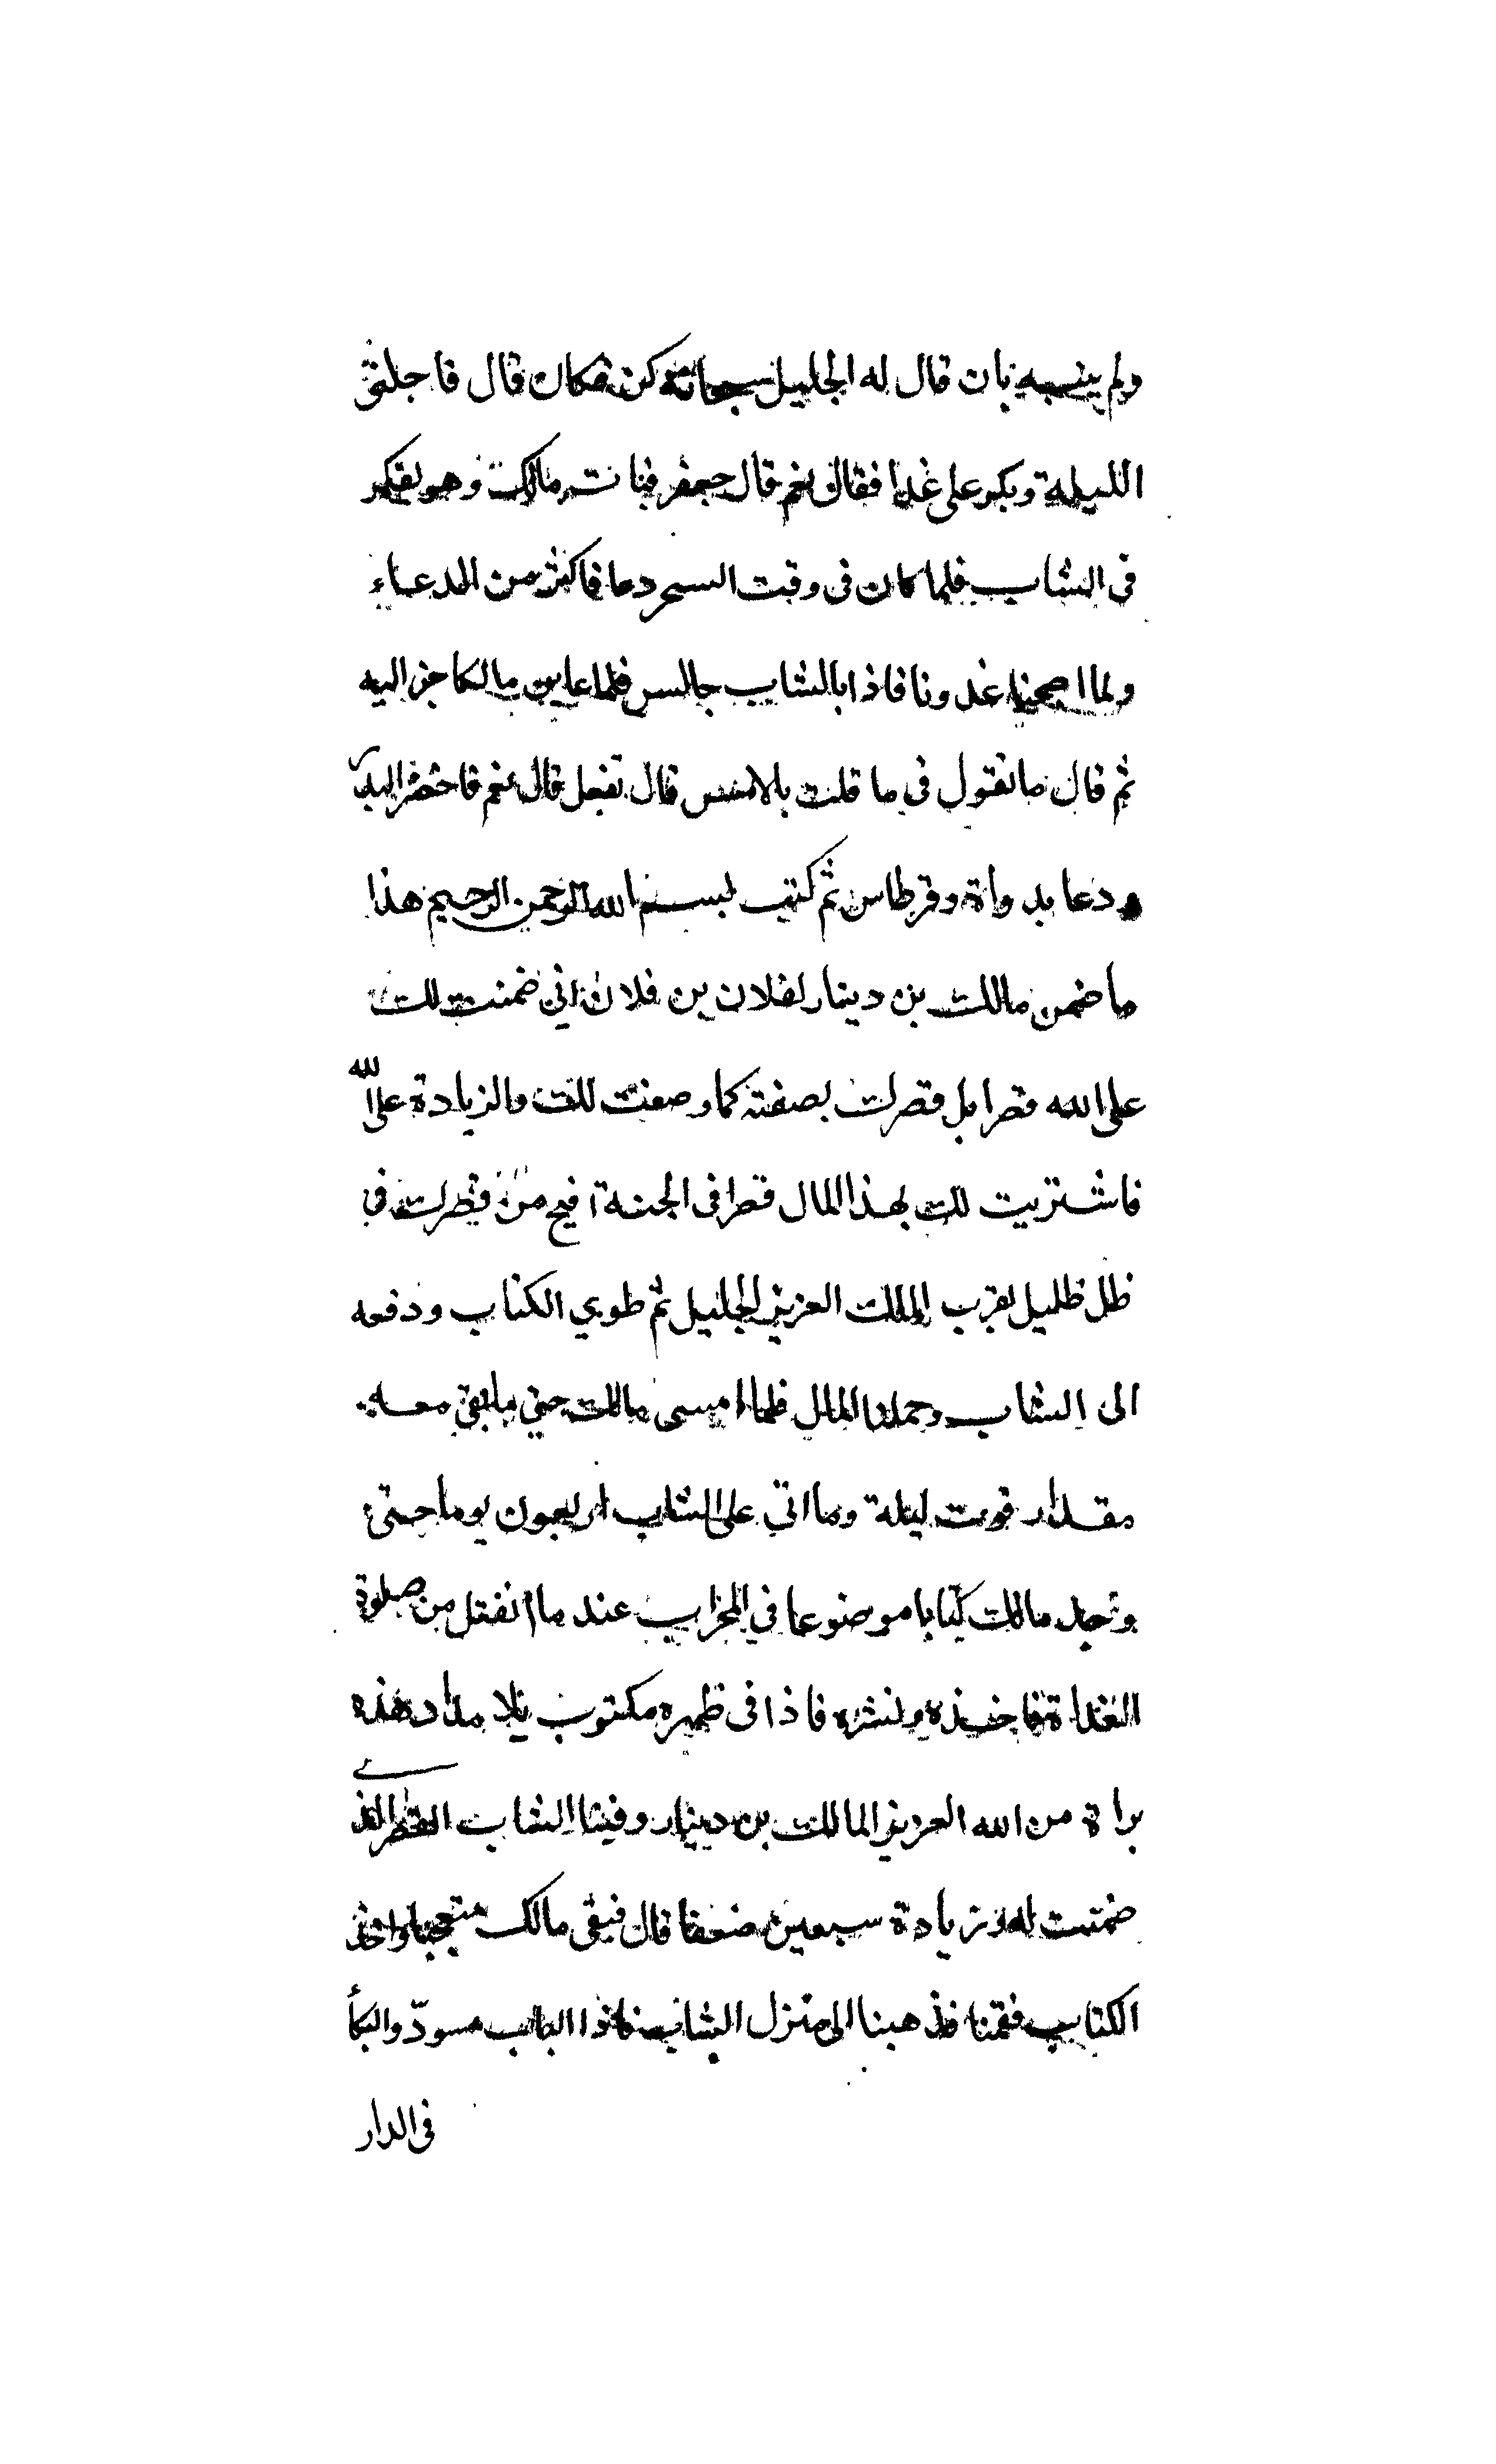 ولم يبنيه بان قال له الجليل سبحانه كن فكان قال فاجلني
الليلة وبكر على غدا فقال نعم قال جعفر فبات مالك وهو يفكر
فى الشاب فلما كان فى وقت السحر دعا فاكثر من الدعاء
ولما اصبحنا غدونا فاذا بالشاب جالس فلما عاين مالكا خر اليه
ثم قال ما تقول فى ما قلت بالامس قال تفعل قال نعم فاحضر البدر
ودعا بدواة وقرطاس ثم كتب بسم الله الرحمن الرحيم هذا
ما ضمن مالك بن دينار لفلان بن فلان اني ضمنت لك
على الله قصرا بدل قصرك بصفته كما وصفت لك والزيادة على الله
فاشتريت لك بهذا المال قصرا فى الجنة افيح من قصرك في
ظل ظليل بقرب الملك العزيز الجليل ثم طوي الكتاب ودفعه
الى الشاب وحملنا المال فلما امسى مالك حتي ما بقي معه
مقدار قوت ليلة وما اتي على الشاب اربعون يوما حتى
وجد مالك كتابا موضوعا في المحراب عند ما انفتل من صلوة
الغداة فاخذه ونشره فاذا فى ظهره مكتوب بلا مداد هذه
براة من الله العزيز لمالك بن دينار وفينا الشاب القصر الذي
ضمنت له وزيادة سبعين ضعفا قال فبقى مالك متعجبا واخذ
الكتاب فقمنا فذهبنا الى منزل الشاب فاذا الباب مسودّ والبكأ
فى الدار